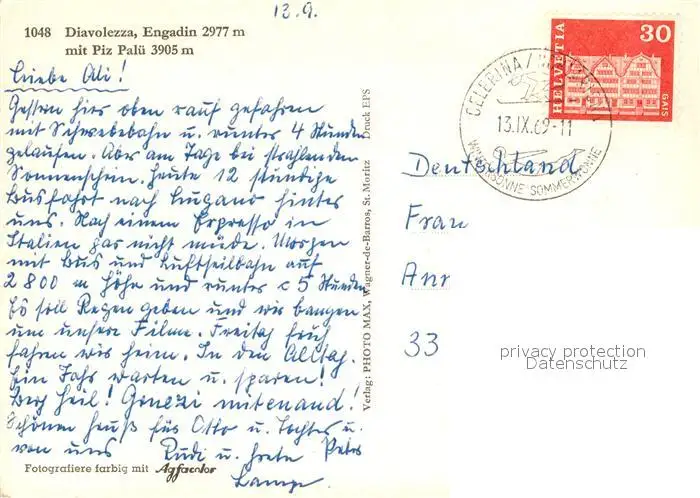 13.9.
1048 Diavolezza, Engadin 2977 m
mit Piz Palü 3905 m
Liebe Oli!
Gestern hier oben rauf gefahren
mit Schwebebahn u. runter 4 Stunden
gelaufen. Aber am Tage bei strahlenden
Sonnenschein. Heute 12 stündige
Busfahrt nach Lugano hinter
uns. Nach einem Expresso in
Italien gar nicht müde. Morgen
mit Bus und Luftseilbahn auf
2800 m Höhe und runter c 5 Stunden
Es soll Regen geben und wir bangen
um unsere Filme. Freitag früh
fahren wir heim. In den Alltag.
Ein Jahr warten u. sparen!
Berg Heil! mitenand!
Schönen Gruß für Otto u. Tochter u.
von uns Rudi u. Grete Peter
Lampe
Fotografiere farbig mit Agfacolor
Verlag: PHOTO MAX, Wagner-de-Barros, St. Moritz Druck EPS
HELVETIA
30
GAIS
CELERINA
13.IX.69-11
WINTERSONNE SOMMERWONNE
Deutschland
Frau
Anr
33
privacy protection
Datenschutz